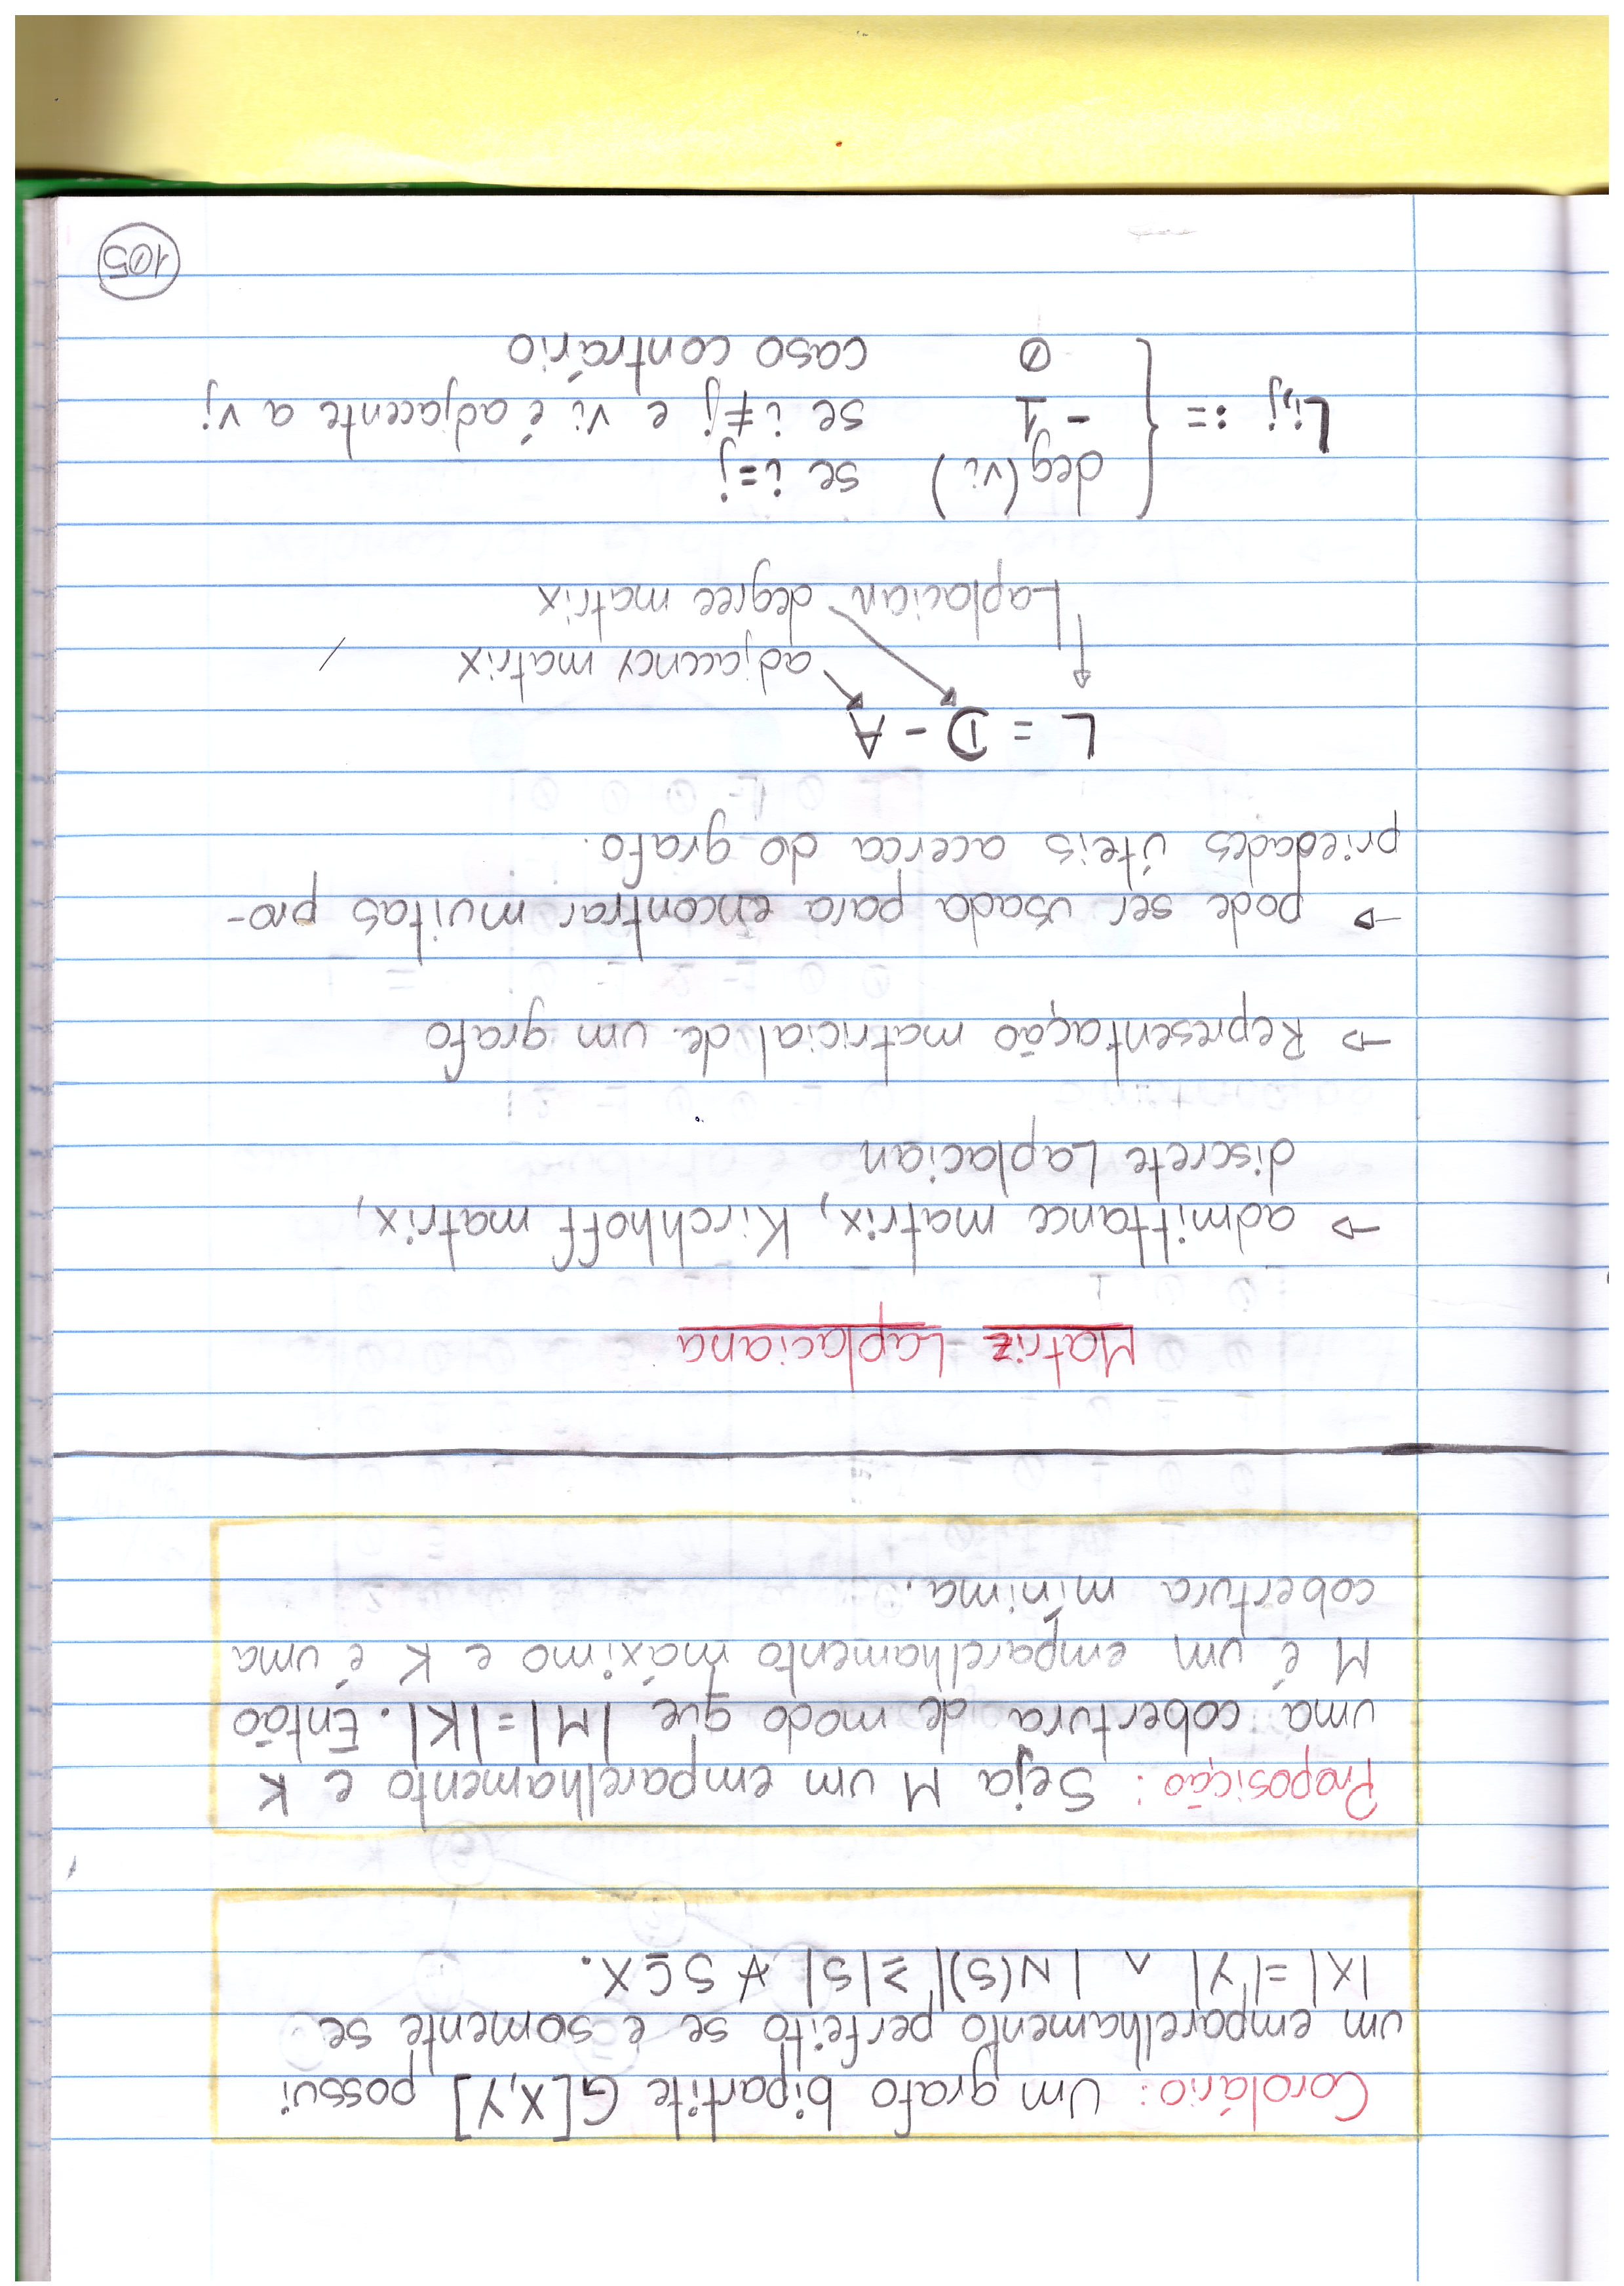 Corolário: Um grafo bipartite G[X,Y] possui
um emparelhamento perfeito se e somente se
|X|=|Y| ∧ |N(S)| ≥ |S| ∀ S ⊆ X.
Proposição: Seja M um emparelhamento e K
uma cobertura de modo que |M|=|K|. Então
M é um emparelhamento máximo e K é uma
cobertura mínima.
Matriz Laplaciana
→ admittance matrix, Kirchhoff matrix,
discrete Laplacian
→ Representação matricial de um grafo
→ pode ser usada para encontrar muitas pro-
priedades úteis acerca do grafo.
L = D - A
adjacency matrix
Laplacian degree matrix
Li,j := { deg(vi) se i=j
-1 se i≠j e vi é adjacente a vj
0 caso contrário
105